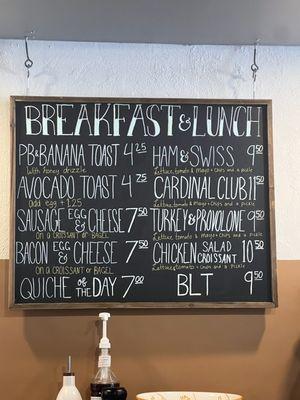 BREAKFAST & LUNCH
PB & BANANA TOAST 4.25
with honey drizzle
AVOCADO TOAST 4.25
add egg + 1.25
SAUSAGE EGG & CHEESE 7.50
ON A CROISSANT OR BAGEL
BACON EGG & CHEESE 7.50
ON A CROISSANT OR BAGEL
QUICHE OF THE DAY 7.00
HAM & SWISS 9.50
Lettuce, tomato & Mayo + Chips and a pickle
CARDINAL CLUB 11.50
Lettuce, tomato & Mayo + Chips and a pickle
TURKEY & PROVOLONE 9.50
Lettuce, tomato & Mayo + Chips and a pickle
CHICKEN SALAD CROISSANT 10.50
Lettuce, tomato + Chips and a Pickle
BLT 9.50